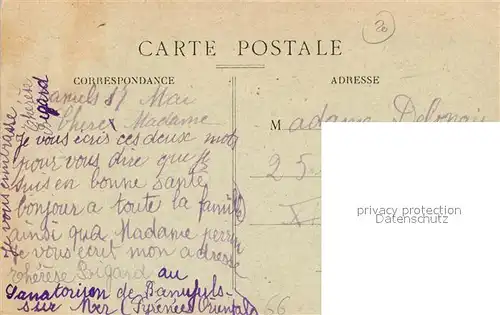 20
CARTE POSTALE
CORRESPONDANCE
ADRESSE
Mai
Chere Madame
Je vous écris ces deux mots
pour vous dire que je
suis en bonne santé
bonjour a toute la famille
ainsi qua Madame
Je vous ecrit mon adresse
Thérèse Bigard au
Sanatorium de Banyuls-
sur Mer (Pyrénées Orientales
Je vous embrasse
Thérèse
Bigard
Madame
25
66
privacy protection
Datenschutz